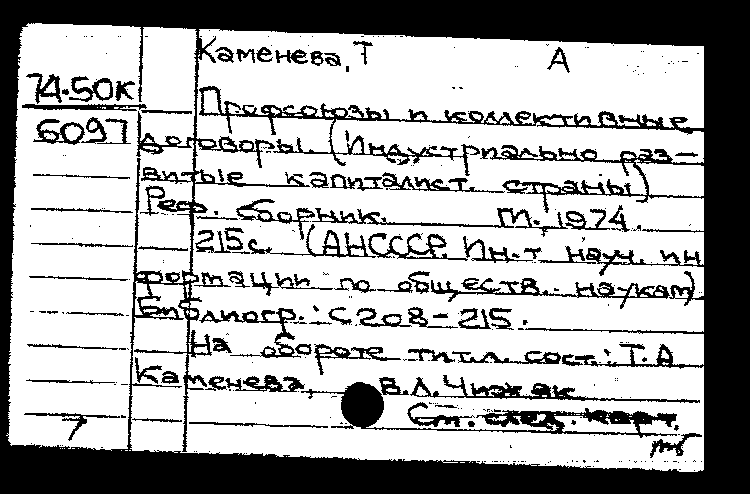 Каменева, Т А
74.50К
Профсоюзы и коллективные
6097 договоры. (Индустриально раз-
витые капиталист. страны)
Реф. сборник. М., 1974.
215с. (АНСССР. Ин-т науч. ин
формации по обществ. наукам)
Библиогр.: с 208-215.
На обороте титл. сост.: Т.А.
Каменева, В.Л. Чижак
См. след. карт.
7